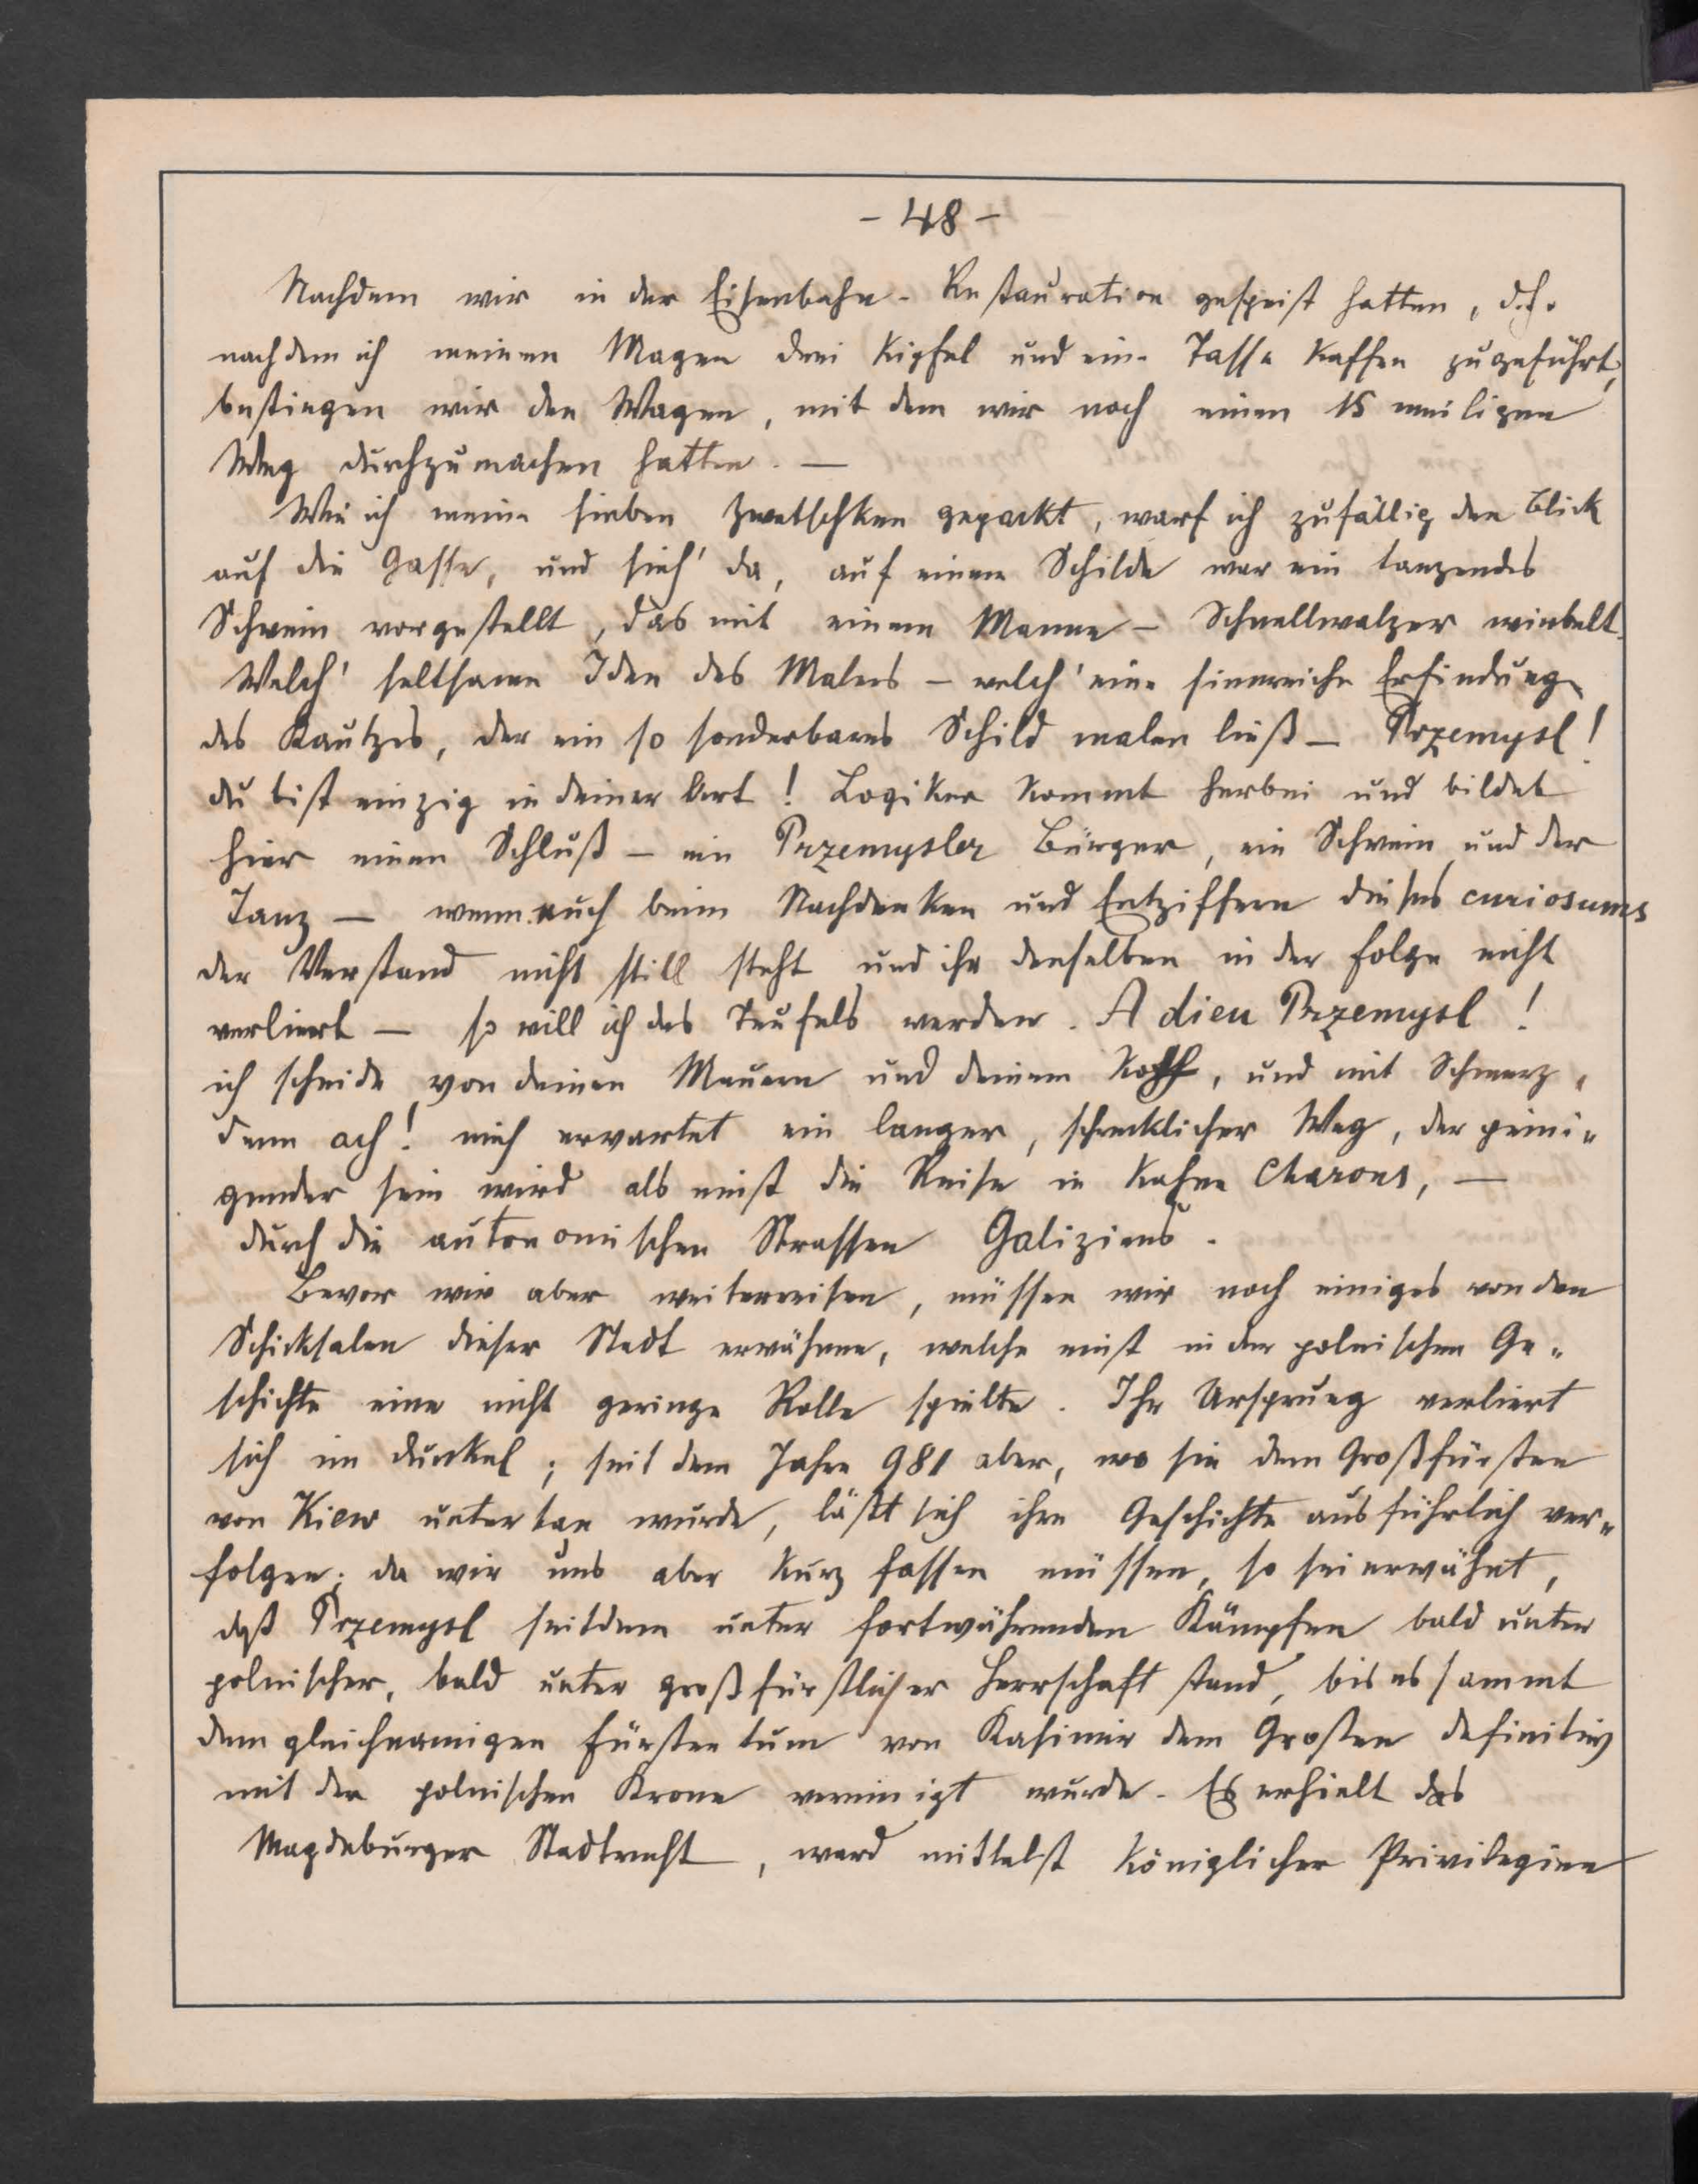 - 48 -
Nachdem wir in der Eisenbahn-Restauration gespeist hatten, d.h.
nachdem ich meinen Magen drei Kipfel und eine Tasse Kaffee zugeführt,
bestiegen wir den Wagen, mit dem wir noch einen 15 meiligen
Weg durchzumachen hatten. —
Wie ich meine sieben Zwetschken gepackt, warf ich zufällig den Blick
auf die Gasse, und sieh' da, auf einem Schilde war ein tanzendes
Schwein vorgestellt, das mit einem Manne – Schnellwalzer wirbelt.
Welch' seltsame Idee des Malers – welch' eine sinnreiche Erfindung
des Kautzes, der ein so sonderbares Schild malen ließ – Przemysl!
du bist einzig in deiner Art! Logiker kommt herbei und bildet
hier einen Schluß – ein Przemysler Bürger, ein Schwein und der
Tanz – wenn euch beim Nachdenken und Entziffern dieses curiosums
der Verstand nicht still steht und ihr denselben in der Folge nicht
verliert – so will ich des Teufels werden. Adieu Przemysl!
ich scheide von deinen Mauern und deinem Koth, und mit Schmerz,
denn ach! mich erwartet ein langer, schrecklicher Weg, der peini„
gender sein wird als einst die Reise in Kahne Charons, —
durch die autonomischen Strassen Galiziens.
Bevor wir aber weiterreisen, müssen wir noch einiges von den
Schicksalen dieser Stadt erwähnen, welche einst in der polnischen Ge„
schichte eine nicht geringe Rolle spielte. Ihr Ursprung verliert
sich im Dunkel; seit dem Jahre 981 aber, wo sie dem Großfürsten
von Kiew untertan wurde, läßt sich ihre Geschichte ausführlich ver„
folgen; da wir uns aber kurz fassen müssen, so sei erwähnt,
daß Przemysl seitdem unter fortwährenden Kämpfen bald unter
polnischer, bald unter großfürstlicher Herrschaft stand, bis es sammt
dem gleichnamigen Fürstentum von Kasimir dem Großen definitiv
mit der polnischen Krone vereinigt wurde. Es erhielt das
Magdeburger Stadtrecht, ward mittelst königlicher Privilegien